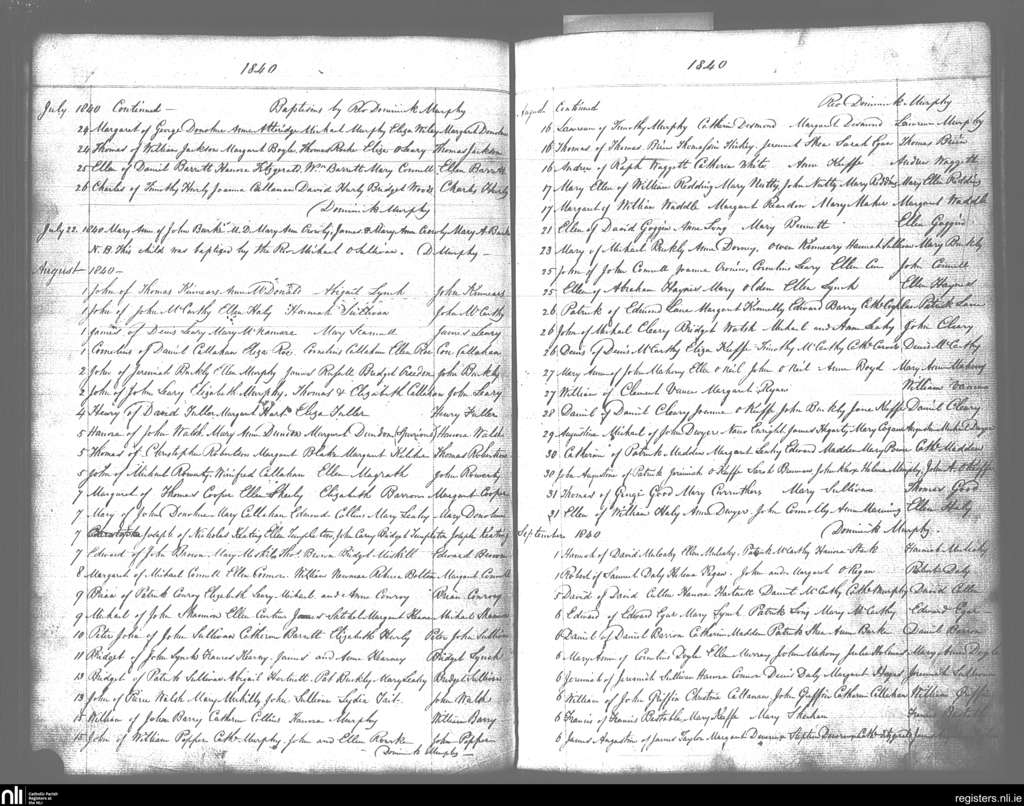 1840
July 1840 Continued — Baptisms by Rev Dominick Murphy
24 Margaret of George Donohue Anne Attridge Michael Murphy Eliza Wiley Margaret Donohue
24 Thomas of William Jackson Margaret Boyle Thomas Eliza O'Leary Thomas Jackson
25 Ellen of Daniel Barrett Honora Fitzgerald Wm Barrett Mary Connell Ellen Barrett
26 Charles of Timothy Hurly Joanna Callanan David Hurly Bridget Woods Charles Hurly
(Dominick Murphy
July 22 1840 Mary Ann of John Burke M.D. Mary Ann Crowly, James & Mary Ann Crowly Mary A Burke
N.B. This child was baptized by the Rev Michael O Sullivan. (D Murphy —
August 1840 —
1 John of Thomas Kinnears Ann McDonald — Abigail Lynch John Kinnears
1 John of John McCarthy Ellen Haly Hannah Sullivan John McCarthy
1 James of Denis Leary Mary McNamara Mary Scannell James Leary
1 Cornelius of Daniel Callahan Eliza Roe Cornelius Callahan Ellen Roe Cor. Callahan
2 John of Jeremiah Buckly Ellen Murphy James Bridget Riordan John Buckly
2 John of John Leary Elizabeth Murphy Thomas & Elizabeth Callahan John Leary
4 Henry of David Fuller Margaret Hart Eliza Fuller Henry Fuller
5 Honora of John Walsh Mary Ann Dundon Margaret Dundon (Spurious) Honora Walsh
5 Thomas of Christopher Robertson Margaret Blake Margaret Kelcher Thomas Robertson
5 John of Michael Rowarty Winifred Callaham Ellen Magrath John Rowarty
7 Margaret of Thomas Cooper Ellen Sheehy Elizabeth Barron Margaret Cooper
7 Mary of John Donohue Mary Callahan Edmund Collins Mary Leahy Mary Donohue
7 Joseph of Nicholas Keating Ellen Templeton, John Corry Bridget Templeton Joseph Keating
7 Edward of John Brown Mary Thos Brown Bridget Edward Brown
8 Margaret of Michael Connell Ellen Connor William Nunan Rebecca Bolton Margaret Connell
9 Brian of Patrick Conroy Elizabeth Leary Michael and Anne Conroy Brian Conroy
9 Michael of John Shannon Ellen Curtin James Margaret Michael Shannon
10 Peter John of John Sullivan Catherine Barrett Elizabeth Hurly Peter John Sullivan
11 Bridget of John Lynch Frances Kearny James and Anne Kearney Bridget Lynch
13 Bridget of Patrick Sullivan Abigail Hartnett Pat Buckly Mary Leahy Bridget Sullivan
13 John of Pierce Walsh Mary Mulcahy John Sullivan Lydia Tait John Walsh
15 William of John Barry Catherine Collins Hannah Murphy William Barry
15 John of William Popper Cath Murphy John and Ellen Rourke John Popper
(Dominick Murphy —
1840
August Continued Rev Dominick Murphy
16 Lawrence of Timothy Murphy Catherine Desmond Margaret Desmond Lawrence Murphy
16 Thomas of Thomas Brien Thomasine Hickey Jeremiah Shea Sarah Egar Thomas Brien
16 Andrew of Ralph Waggett Catherine White Ann Keeffe Andrew Waggett
17 Mary Ellen of William Redding Mary Nutty John Nutty Mary Redding Mary Ellen Redding
17 Margaret of William Waddle Margaret Reardon Mary Maher Margaret Waddle
21 Ellen of David Goggin Anne Long Mary Ellen Goggin
23 Mary of Michael Buckly Anne Downy Owen Kennedy Hannah Sullivan Mary Buckly
25 John of John Connell Joanna Cronin Cornelius Leary Ellen John Connell
25 Ellen of Abraham Haynes Mary Olden Ellen Lynch Ellen Haynes
26 Patrick of Edward Lane Margaret Kennelly Edward Barry Cath Coghlan Patrick Lane
26 John of Michael Cleary Bridget Walsh Michael and Ann Leahy John Cleary
26 Denis of Denis McCarthy Eliza Keeffe Timothy McCarthy Cath Denis McCarthy
27 Mary Anne of John Mahony Ellen O Neil John O Neil Anne Boyd Mary Anne Mahony
27 William of Clement Vance Margaret William Vance
28 Daniel of Daniel Cleary Joanna O Keeffe John Buckly Jane Keeffe Daniel Cleary
29 Augustine Michael of John Dwyer Enright James Hegarty Mary Cogan Augustine Michael Dwyer
30 Catherine of Patrick Madden Margaret Leahy Edward Madden Mary Power Cath Madden
30 John Augustine of Patrick Jeremiah O Keeffe Sarah John Helena Murphy John A. O'Keeffe
31 Thomas of George Good Mary Carruthers Mary Sullivan Thomas Good
31 Ellen of William Haly Anne Dwyer John Connolly Ann Manning Ellen Haly
September 1840 (Dominick Murphy
1 Hannah of David Mulcahy Ellen Mulcahy Patrick McCarthy Hannah Hannah Mulcahy
1 Robert of Samuel Daly Helena Regan John and Margaret O Regan Robert Daly
5 David of David Cullen Honora Hartnett Daniel McCarthy Cath Murphy David Cullen
6 Edward of Edward Egar Mary Lynch Patrick Long Mary McCarthy Edward Egar
6 Daniel of Daniel Barron Catherine Madden Patrick Shea Ann Burke Daniel Barron
6 Mary Anne of Cornelius Doyle Ellen Murray John Mahony Julia Holmes Mary Anne Doyle
6 Jeremiah of Jeremiah Sullivan Honora Connor Denis Daly Margaret Hayes Jeremiah Sullivan
6 William of John Griffin Christina Callanan John Griffin Catherine Callahan William Griffin
6 Francis of Francis Mary Keeffe Mary Sheehan Francis
6 James Augustine of James Taylor Margaret Stephen Cath Fitzgerald James
nli Catholic Parish Registers at the NLI
registers.nli.ie